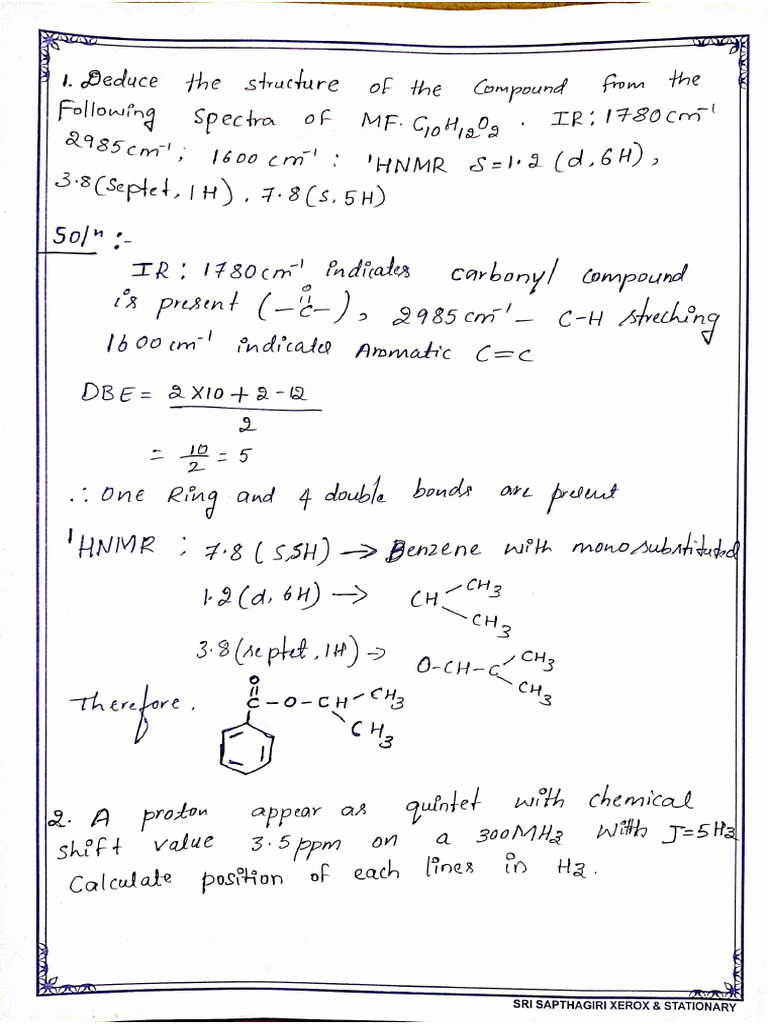 1. Deduce the structure of the Compound from the
Following Spectra of MF. C10H12O2 . IR: 1780 cm-1
2985 cm-1; 1600 cm-1 : 1HNMR S=1.2 (d, 6H),
3.8 (Septet, 1H), 7.8 (S, 5H)
Soln :-
IR: 1780 cm-1 indicates carbonyl compound
is present (-C-), 2985 cm-1 - C-H streching
O
1600 cm-1 indicates Aromatic C=C
DBE = 2X10 + 2 - 12
2
= 10/2 = 5
∴ One Ring and 4 double bonds are present
1HNMR : 7.8 (S,5H) → Benzene with monosubstituted
1.2 (d, 6H) → CH CH3
CH3
3.8 (septet, 1H) → O-CH-C CH3
CH3
Therefore.
O
C-O-CH CH3
CH3
2. A proton appear as quintet with chemical
shift value 3.5 ppm on a 300MHz with J=5Hz
Calculate position of each lines in Hz.
SRI SAPTHAGIRI XEROX & STATIONARY